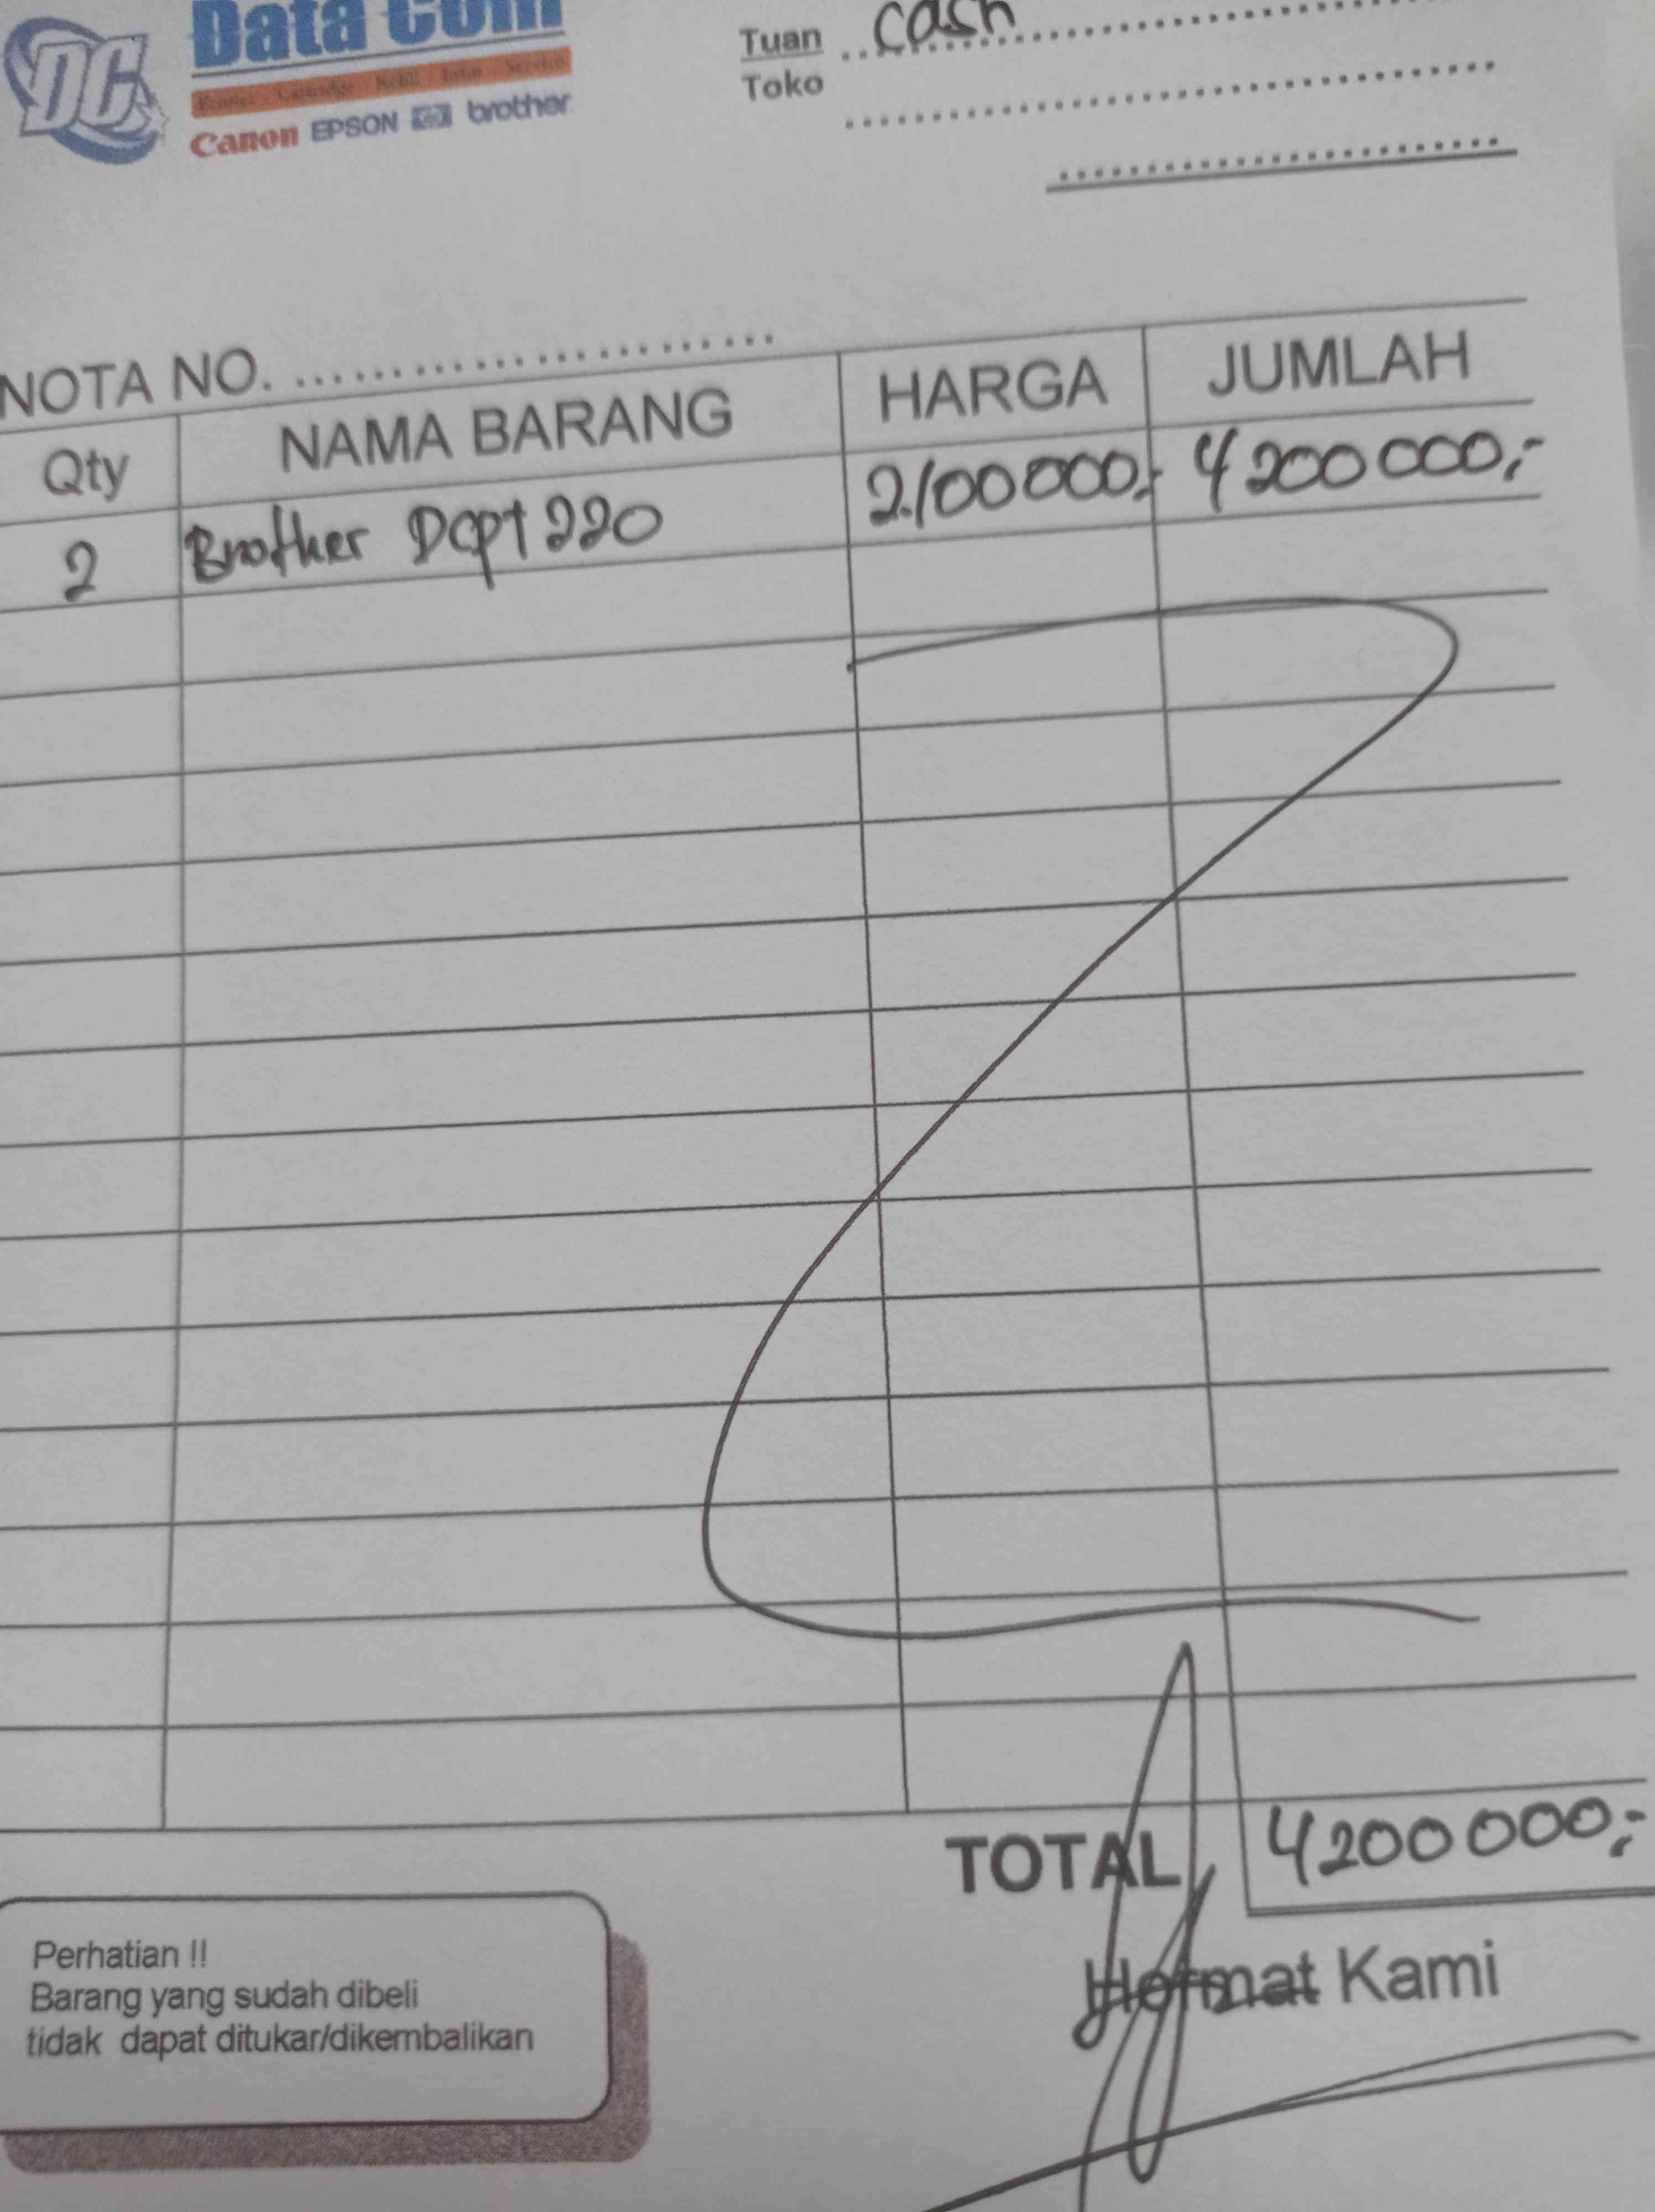 DC
Data Com
Printer - Cartridge - Refill - Infus - Service
Canon EPSON hp brother
Tuan cash
Toko
NOTA NO.
Qty NAMA BARANG HARGA JUMLAH
2 Brother Dcpt 220 2.100000,- 4200000,-
TOTAL 4200000,-
Perhatian !!
Barang yang sudah dibeli
tidak dapat ditukar/dikembalikan
Hormat Kami